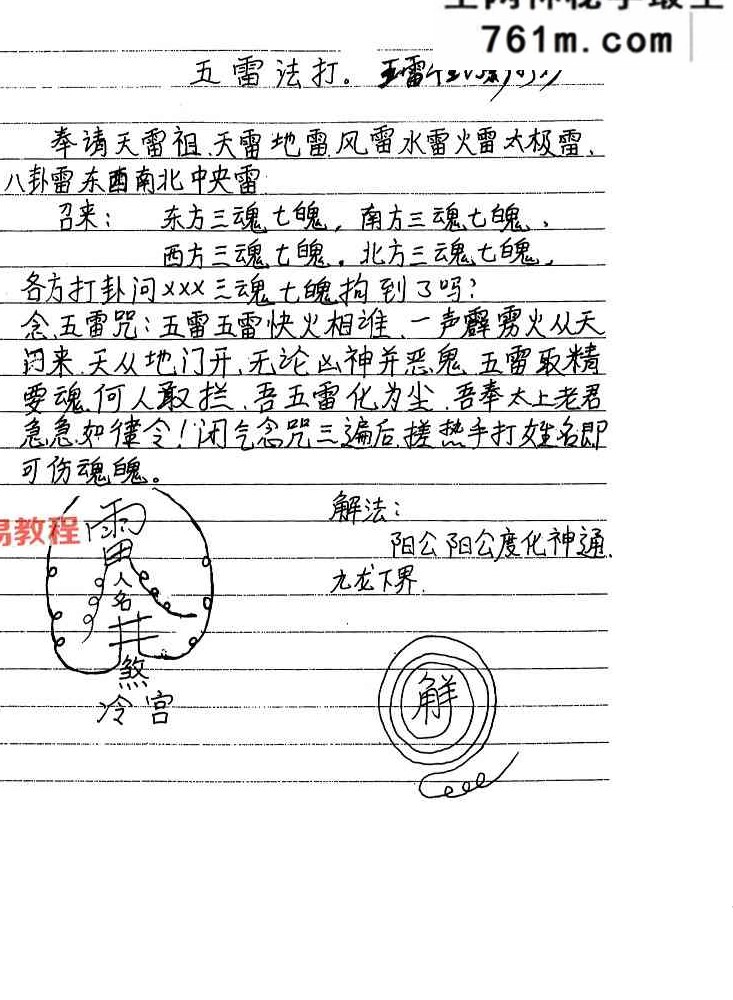 761m.com
五雷法打。
奉请天雷祖、天雷地雷风雷水雷火雷太极雷、
八卦雷东西南北中央雷
召来： 东方三魂七魄，南方三魂七魄、
西方三魂七魄。北方三魂七魄，
各方打卦问XXX三魂七魄拘到了吗？
念、五雷咒：五雷五雷快火相谁、一声霹雳火从天
闪来、天从地门开、无论凶神并恶鬼、五雷取精
要魂、何人敢拦、吾五雷化为尘、吾奉太上老君
急急如律令！闭气念咒三遍后、搓热手打姓名即
可伤魂魄。
解法：
阳公阳公度化神通、
九龙下界.
易教程
雷
人名
井
煞
冷宫
解